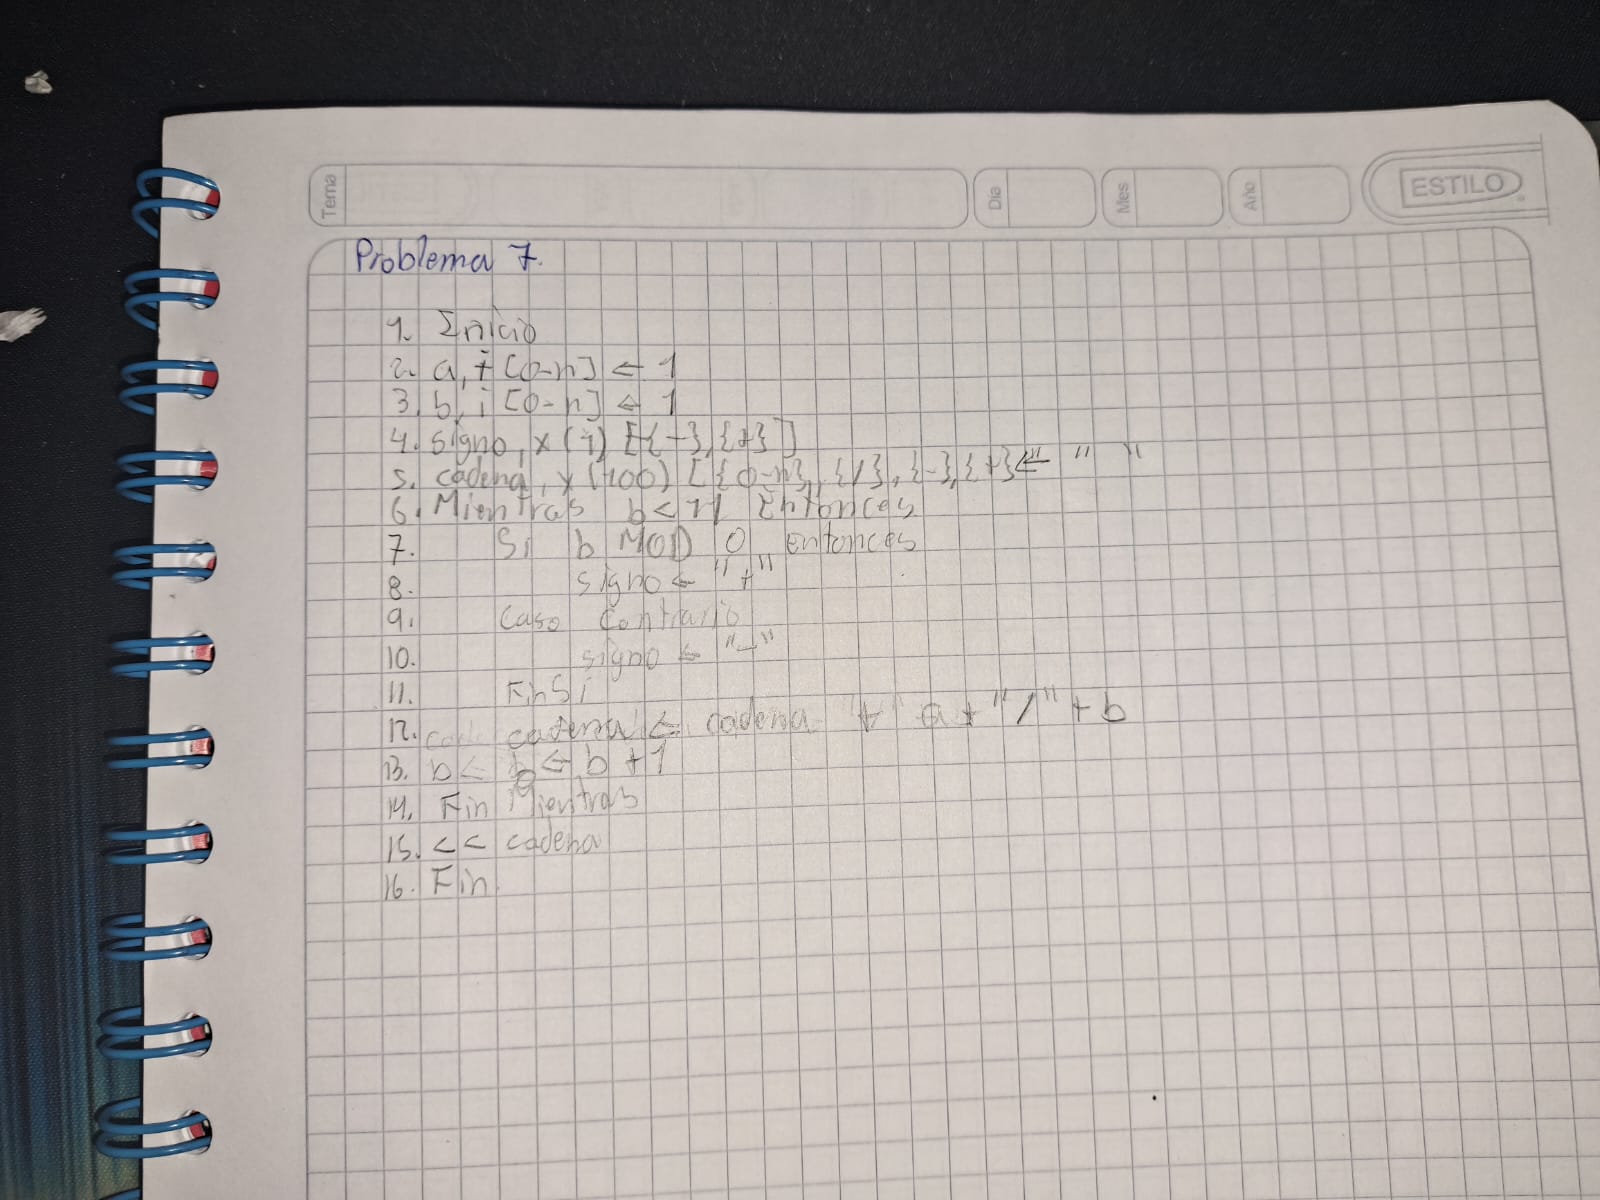 Tema
Día
Mes
Año
ESTILO
Problema 7.
1. Inicio
2. a, f [0-n] ← 1
3. b, i [0-n] ← 1
4. signo, x (1) [{-},{+}]
5. cadena, x (100) [{0-n}, {/}, {-},{+} ← " "
6. Mientras b < 11 Entonces
7. Si b MOD 0 entonces
8. signo ← "+"
9. Caso Contrario
10. signo ← "-"
11. FinSi
12. cadena ← cadena "+" a + "/" + b
13. b ← b + 1
14. Fin Mientras
15. << cadena
16. Fin